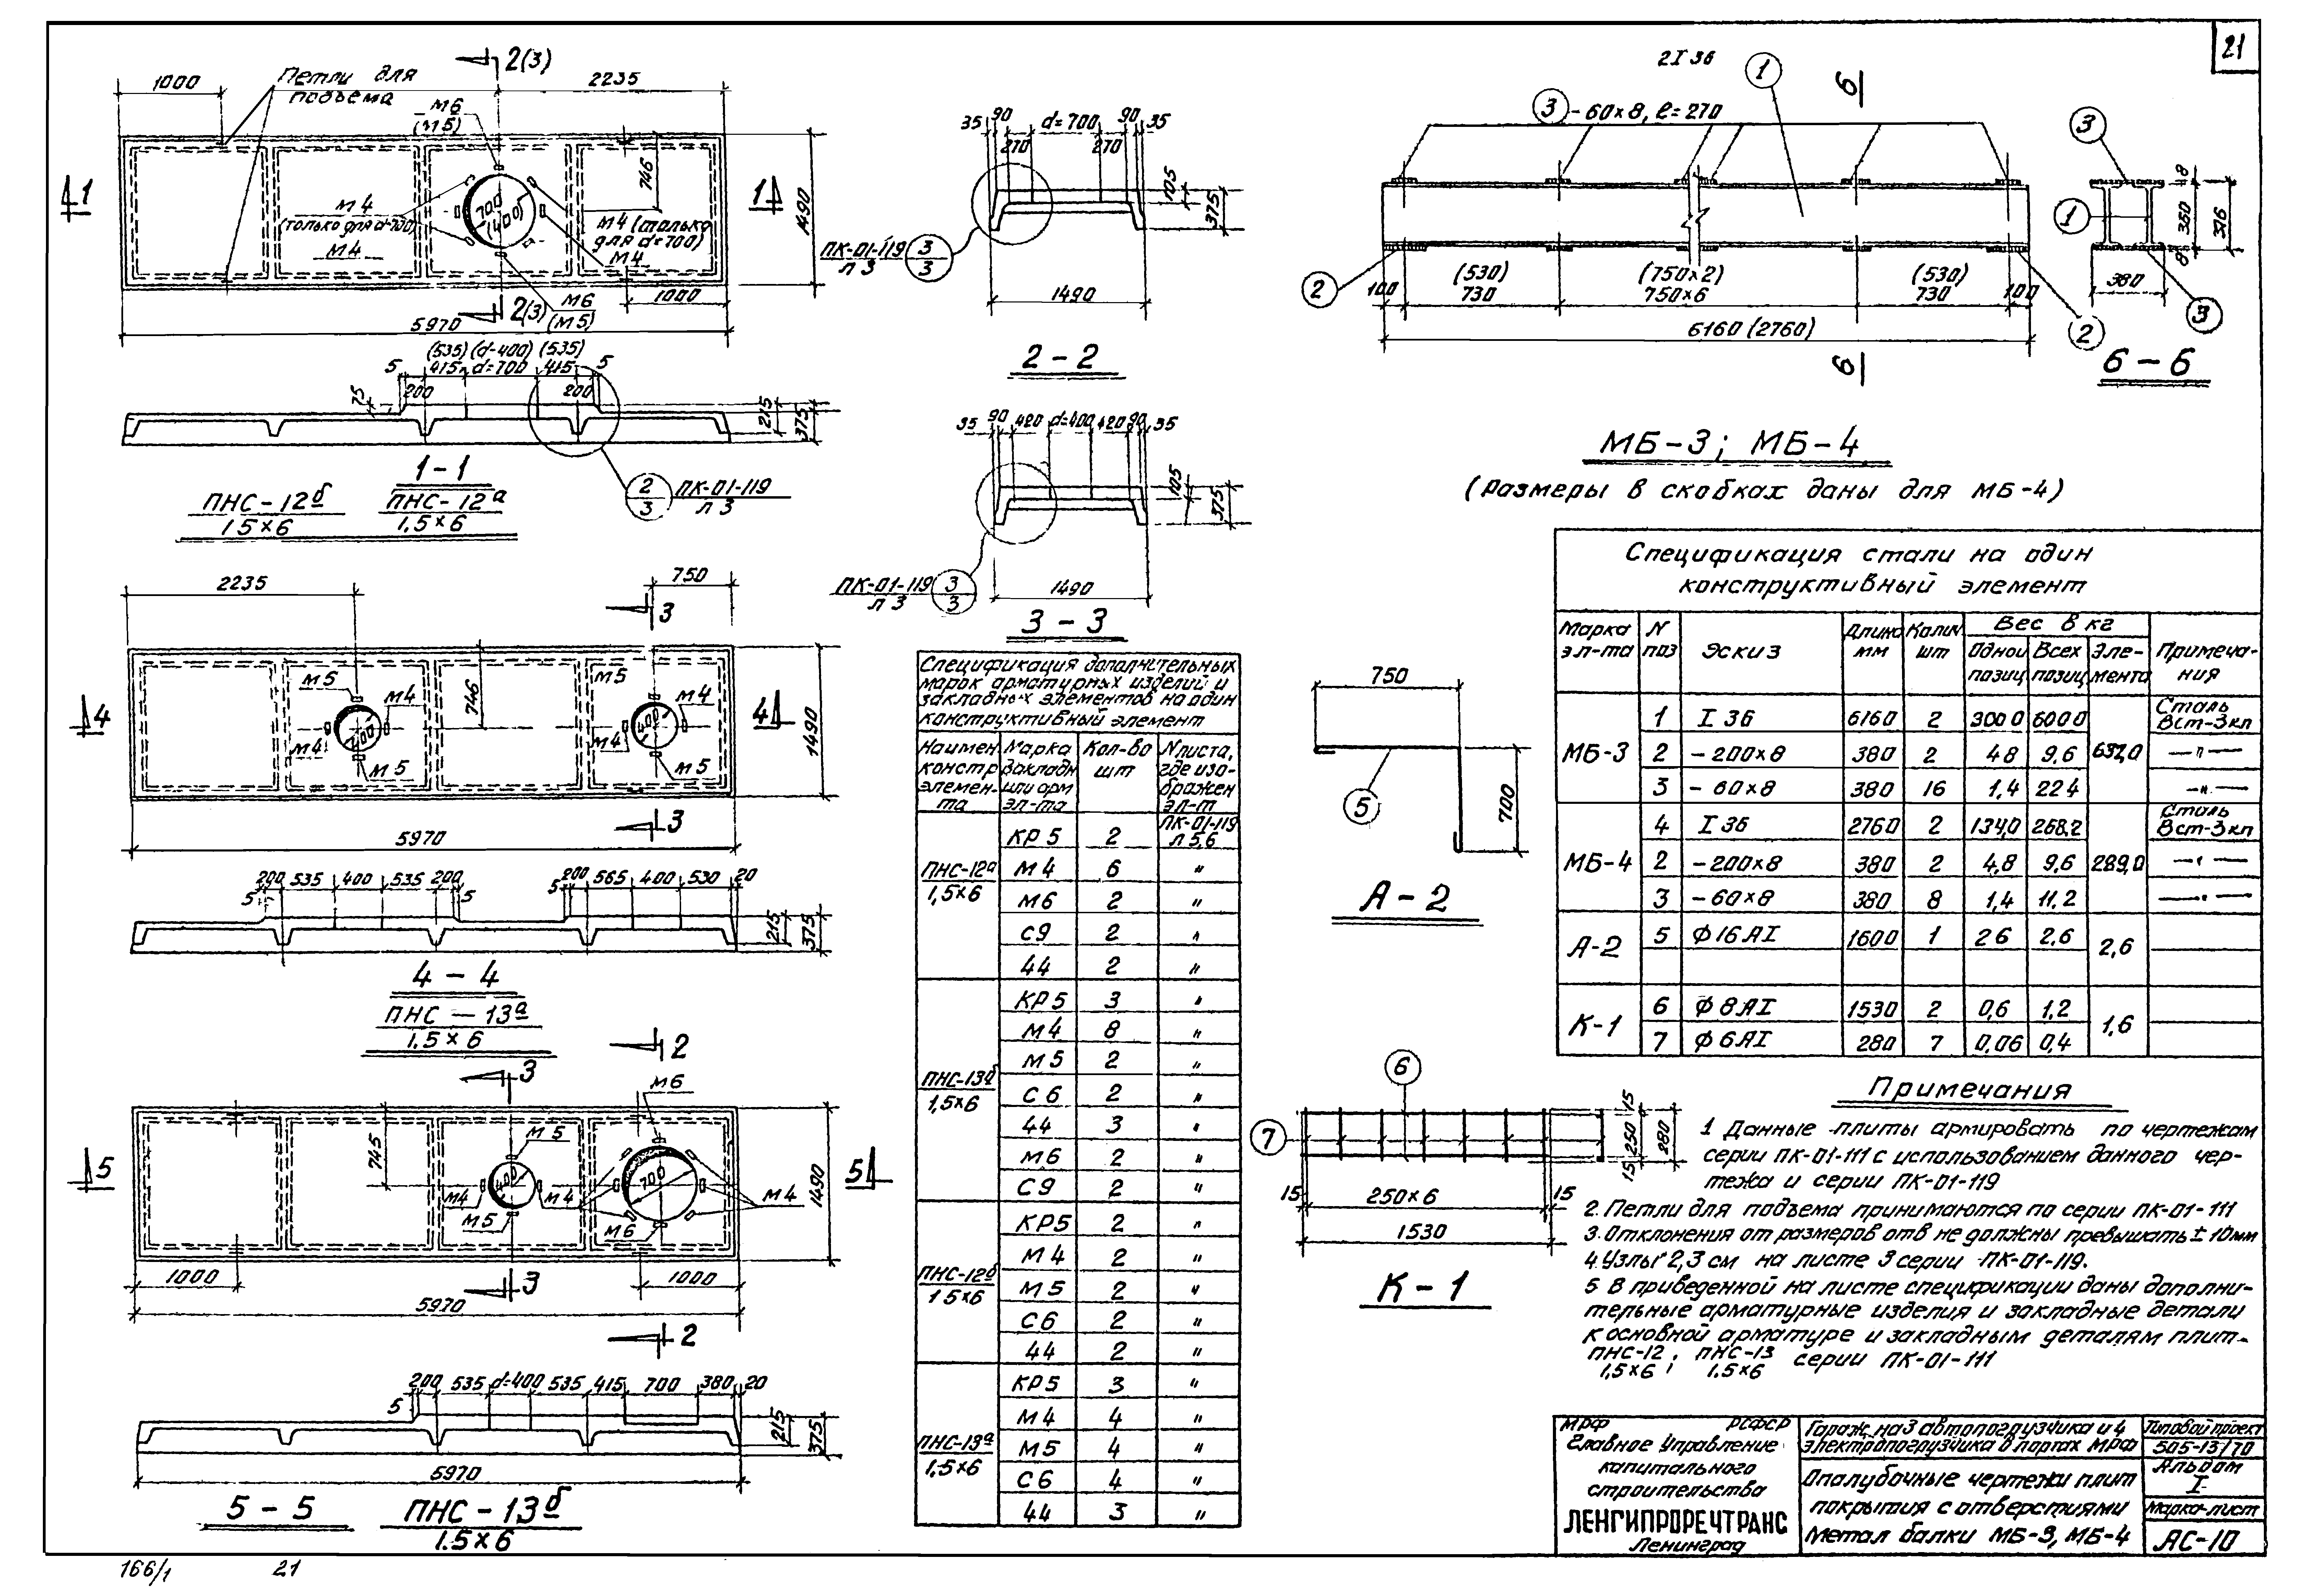 21
1000
Петли для
подъема
2(3)
2235
М6
(М5)
746
1490
1
1
М4
(только для d=700)
М4
700
(400)
М4 (только
для d=700)
М4
М6
(М5)
1000
2(3)
5970
(535) (d-400) (535)
5 415 d=700 415 5
200 200
75
215
375
1-1
ПНС-12б
1.5×6
ПНС-12а
1.5×6
2
3
ПК-01-119
л 3
35 90 d=700 90 35
270 270
105
375
ПК-01-119
л 3
3
3
1490
2-2
35 90 420 d=400 420 90 35
105
375
ПК-01-119
л 3
3
3
1490
3-3
2235
750
3
М5
М4
400
М4
М5
746
М5
М4
400
М4
М5
1490
4
4
3
5970
200 535 400 535 200 200 565 400 530 20
5 5 5
215
375
4-4
ПНС-13а
1.5×6
2
3
М6
745
М5
400
М4
М4
М5
700
М4
М6
1490
5
5
1000
3
1000
5970
2
200 535 d=400 535 415 700 380 20
5
215
375
5970
5-5
ПНС-13б
1.5×6
2I36
1
6
3 -60×8, ℓ=270
2
100 (530) 730 (750×2) 750×6 (530) 730 100
6160 (2760)
2
6
3
1
8
360
8
376
380
3
6-6
МБ-3; МБ-4
(Размеры в скобках даны для МБ-4)
Спецификация дополнительных
марок арматурных изделий и
закладных элементов на один
конструктивный элемент
Наимен. констр элемен-та Марка закладн или арм эл-та Кол-во шт N листа, где изо-бражен эл-т
ПНС-12а 1,5×6 КР5 2 ПК-01-119 л 5,6
М4 6 "
М6 2 "
С9 2 "
44 2 "
ПНС-13б 1,5×6 КР5 3 "
М4 8 "
М5 2 "
С6 2 "
44 3 "
М6 2 "
С9 2 "
ПНС-12б 1.5×6 КР5 2 "
М4 2 "
М5 2 "
С6 2 "
44 2 "
ПНС-13а 1,5×6 КР5 3 "
М4 4 "
М5 4 "
С6 4 "
44 3 "
750
5
700
А-2
6
7
15
250
15
280
15 250×6 15
1530
К-1
Спецификация стали на один
конструктивный элемент
Марка эл-та N поз Эскиз Длина мм Колич шт Вес в кг Одной позиц Всех позиц Эле-мента Примеча-ния
МБ-3 1 I 36 6160 2 300 0 600 0 632,0 Сталь Вст-3кп
2 -200×8 380 2 4 8 9,6 — " —
3 -60×8 380 16 1,4 22 4 — " —
МБ-4 4 I 36 2760 2 134,0 268,2 289,0 Сталь Вст-3кп
2 -200×8 380 2 4,8 9,6 — " —
3 -60×8 380 8 1,4 11.2 — " —
А-2 5 Ф16АI 1600 1 2 6 2,6 2,6
К-1 6 Ф8АI 1530 2 0,6 1,2 1,6
7 Ф6АI 280 7 0,06 0,4
Примечания
1 Данные плиты армировать по чертежам
серии ПК-01-111 с использованием данного чер-
тежа и серии ПК-01-119
2. Петли для подъема принимаются по серии ПК-01-111
3. Отклонения от размеров отв не должны превышать ± 10мм
4. Узлы 2,3 см на листе 3 серии ПК-01-119.
5 В приведенной на листе спецификации даны дополни-
тельные арматурные изделия и закладные детали
к основной арматуре и закладным деталям плит-
ПНС-12 1,5×6 ; ПНС-13 1.5×6 серии ПК-01-111
МРФ РСФСР
Главное Управление
капитального
строительства
ЛЕНГИПРОРЕЧТРАНС
Ленинград
Гараж на 3 автопогрузчика и 4
электропогрузчика в портах МРФ
Опалубочные чертежи плит
покрытия с отверстиями
Метал балки МБ-3, МБ-4
Типовой проект
505-13/70
Альбом
I
Марка-лист
АС-10
166/1 21